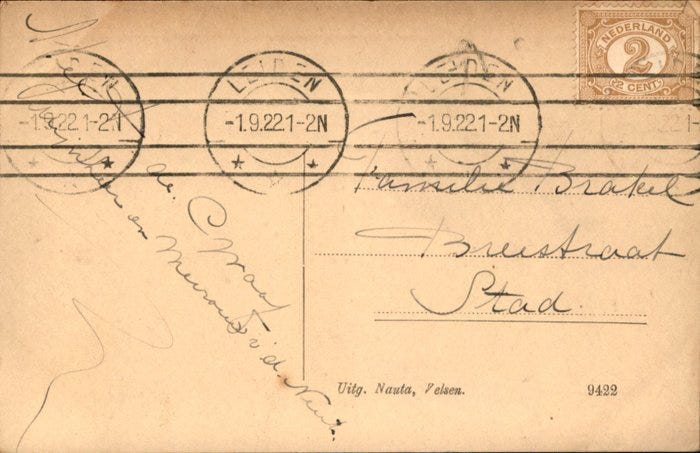 NEDERLAND
2
2 CENT
LEIDEN
-1.9.22.1-2N
LEIDEN
-1.9.22.1-2N
LEIDEN
-1.9.22.1-2N
Met
de.
Mijnheer en Mevrouw v.d.
Familie Brakel
Breestraat
Stad.
Uitg. Nauta, Velsen.
9422